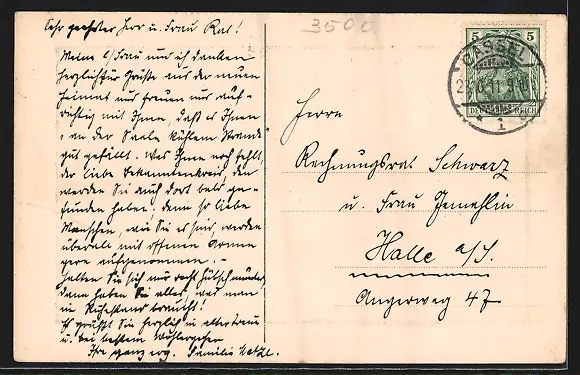 Sehr geehrter Herr u. Frau Rat!
Meine l/Frau und ich danken
herzlich für Grüße aus der neuen
Heimat uns freuen uns auf-
richtig mit Ihnen, daß es Ihnen
"an der Saale kühlem Strande"
gut gefällt. Was Ihnen noch fehlt,
der liebe Bekanntenkreis, den
werden Sie auch dort bald ge-
funden haben, denn so liebe
Menschen, wie Sie es sind, werden
überall mit offenen Armen
gern aufgenommen. -
Halten Sie sich nur recht hübsch munter,
dann haben Sie alles, was man
im Ruhestand braucht!
Es grüßt Sie herzlich in alter Treue
u. bei bestem Wohlergehen
Ihre ganz erg. Familie
3500
5 5
CASSEL
1
DEUTSCHES REICH
Herrn
Rechnungsrat Schwarz
u. Frau Gemahlin
Halle a/S.
Angerweg 47